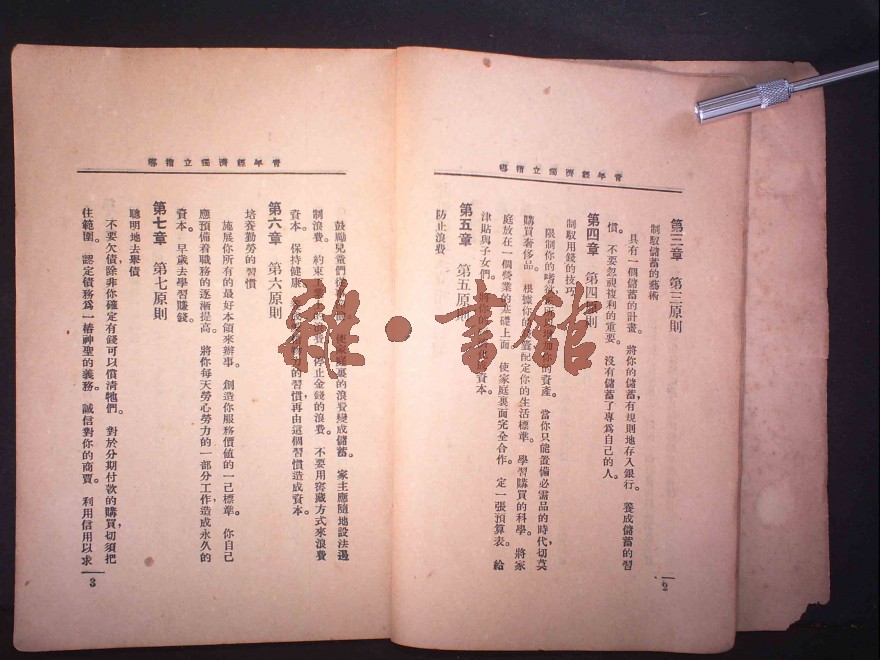 青年經濟獨立指導
第三章 第三原則
制馭儲蓄的藝術
具有一個儲蓄的計畫。 將你的儲蓄,有規則地存入銀行。 養成儲蓄的習
慣。 不要忽視複利的重要。 沒有儲蓄了專爲自己的人。
第四章 第四原則
制馭用錢的技巧
限制你的嗜 你的資產。 當你只能置備必需品的時代,切莫
購買奢侈品。 根據你的 配定你的生活標準。 學習購買的科學。 將家
庭放在一個營業的基礎上面 使家庭裏面完全合作。 定一張預算表。 給
津貼與子女們。 資本。
第五章 第五原則
防止浪費
2
青年經濟獨立指導
鼓勵兒童們從 使家庭裏的浪費變成儲蓄。 家主應隨地設法遏
制浪費。 約束 費 停止金錢的浪費。 不要用窖藏方式來浪費
資本。 保持健康 的習慣,再由這個習慣造成資本。
第六章 第六原則
培養勤勞的習慣
施展你所有的最好本領來辦事。 創造你服務價值的一己標準。 你自己
應預備着職務的逐漸提高。 將你每天勞心勞力的一部分工作,造成永久的
資本。 早歲去學習賺錢。
第七章 第七原則
聰明地去舉債
不要欠債,除非你確定有錢可以償清牠們。 對於分期付款的購買,切須把
住範圍。 認定債務爲一樁神聖的義務。 誠信對你的商賈。 利用信用以求
3
雅·書館